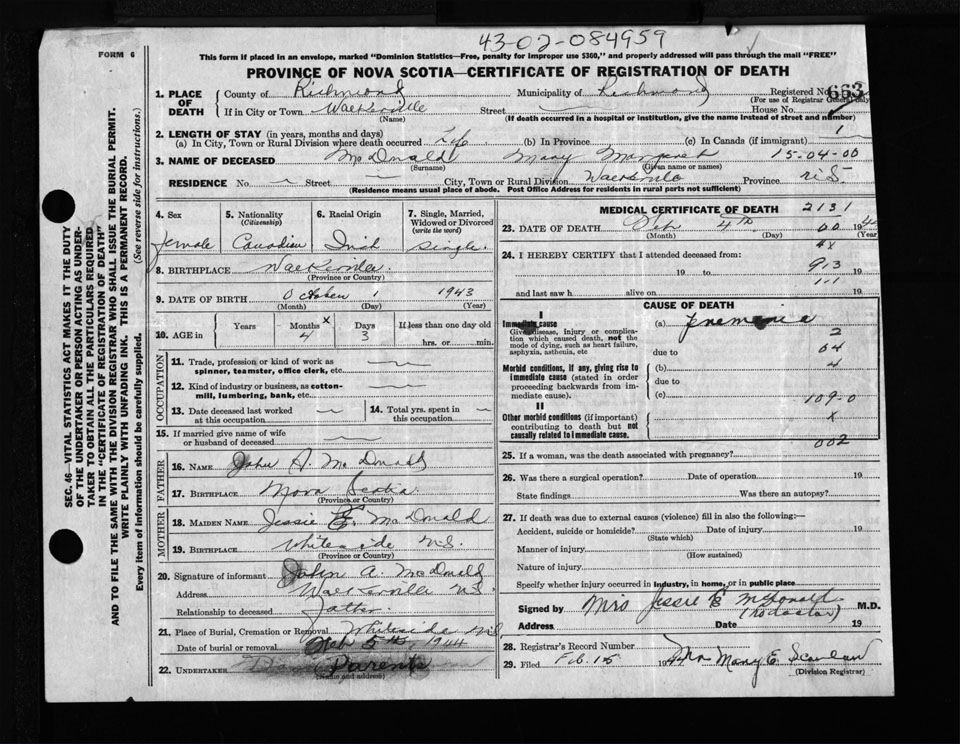 43-02-084959
FORM 6
This form if placed in an envelope, marked "Dominion Statistics—Free, penalty for improper use $300," and properly addressed will pass through the mail "FREE"
PROVINCE OF NOVA SCOTIA—CERTIFICATE OF REGISTRATION OF DEATH
1. PLACE OF DEATH County of Richmond Municipality of Richmond Registered No. 663
(For use of Registrar General only)
If in City or Town Walkerville Street House No.
(Name) (If death occurred in a hospital or institution, give the name instead of street and number)
2. LENGTH OF STAY (in years, months and days) 1
(a) In City, Town or Rural Division where death occurred Life (b) In Province (c) In Canada (if immigrant)
3. NAME OF DECEASED McDonald Mary Margaret 15-04-00
(Surname) (Given name or names)
RESIDENCE No. Street City, Town or Rural Division Walkerville Province N.S.
(Residence means usual place of abode. Post Office Address for residents in rural parts not sufficient)
4. Sex female
5. Nationality (Citizenship) Canadian
6. Racial Origin Irish
7. Single, Married, Widowed or Divorced (write the word) Single
8. BIRTHPLACE Walkerville
(Province or Country)
9. DATE OF BIRTH October 1 1943
(Month) (Day) (Year)
10. AGE in Years Months x 4 Days 3 If less than one day old hrs. or min.
OCCUPATION
11. Trade, profession or kind of work as spinner, teamster, office clerk, etc.
12. Kind of industry or business, as cotton-mill, lumbering, bank, etc.
13. Date deceased last worked at this occupation
14. Total yrs. spent in this occupation
15. If married give name of wife or husband of deceased
FATHER
16. NAME John A. McDonald
17. BIRTHPLACE Nova Scotia
(Province or Country)
MOTHER
18. MAIDEN NAME Jessie E. McDonald
19. BIRTHPLACE Whiteside N.S.
(Province or Country)
20. Signature of informant John A. McDonald
Address Walkerville N.S.
Relationship to deceased father
21. Place of Burial, Cremation or Removal Whiteside N.S.
Date of burial or removal Feb 5th 1944
22. UNDERTAKER Parents
(Name and address)
MEDICAL CERTIFICATE OF DEATH 2131
23. DATE OF DEATH Feb 4th 00 19
(Month) (Day) (Year)
24. I HEREBY CERTIFY that I attended deceased from: 4x
19 to 913 19
111
and last saw h alive on 19
CAUSE OF DEATH
I
Immediate cause
Give disease, injury or complication which caused death, not the mode of dying, such as heart failure, asphyxia, asthenia, etc
(a) pnemonia
2
due to 04
Morbid conditions, if any, giving rise to immediate cause (stated in order proceeding backwards from immediate cause).
(b) 4
due to
(c) 109-0
II
Other morbid conditions (if important) contributing to death but not causally related to immediate cause.
x
002
25. If a woman, was the death associated with pregnancy?
26. Was there a surgical operation? Date of operation 19
State findings Was there an autopsy?
27. If death was due to external causes (violence) fill in also the following:—
Accident, suicide or homicide? Date of injury 19
(State which)
Manner of injury
(How sustained)
Nature of injury
Specify whether injury occurred in industry, in home, or in public place
Signed by Mrs Jessie E McDonald M.D.
(no doctor)
Address Date 19
28. Registrar's Record Number
29. Filed Feb. 15 1944 Mrs Mary E. Scanlan
(Division Registrar)
SEC. 46—VITAL STATISTICS ACT MAKES IT THE DUTY
OF THE UNDERTAKER OR PERSON ACTING AS UNDER-
TAKER TO OBTAIN ALL THE PARTICULARS REQUIRED
IN THE "CERTIFICATE OF REGISTRATION OF DEATH"
AND TO FILE THE SAME WITH THE DIVISION REGISTRAR WHO SHALL ISSUE THE BURIAL PERMIT.
WRITE PLAINLY WITH UNFADING INK. THIS IS A PERMANENT RECORD.
Every item of information should be carefully supplied. (See reverse side for instructions.)